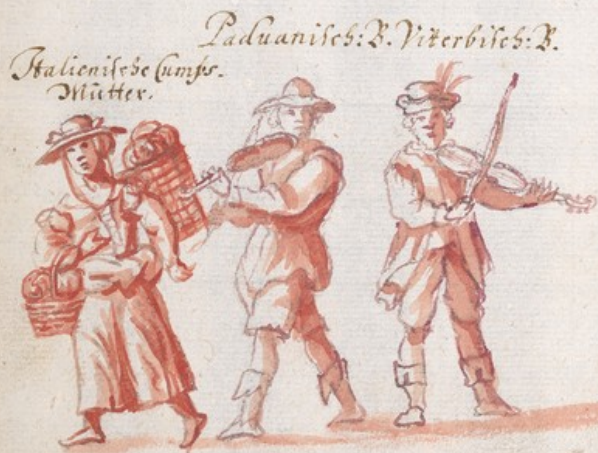 Paduanisch: B. Viterbisch: B.
Italienische Lumps-
Mutter.